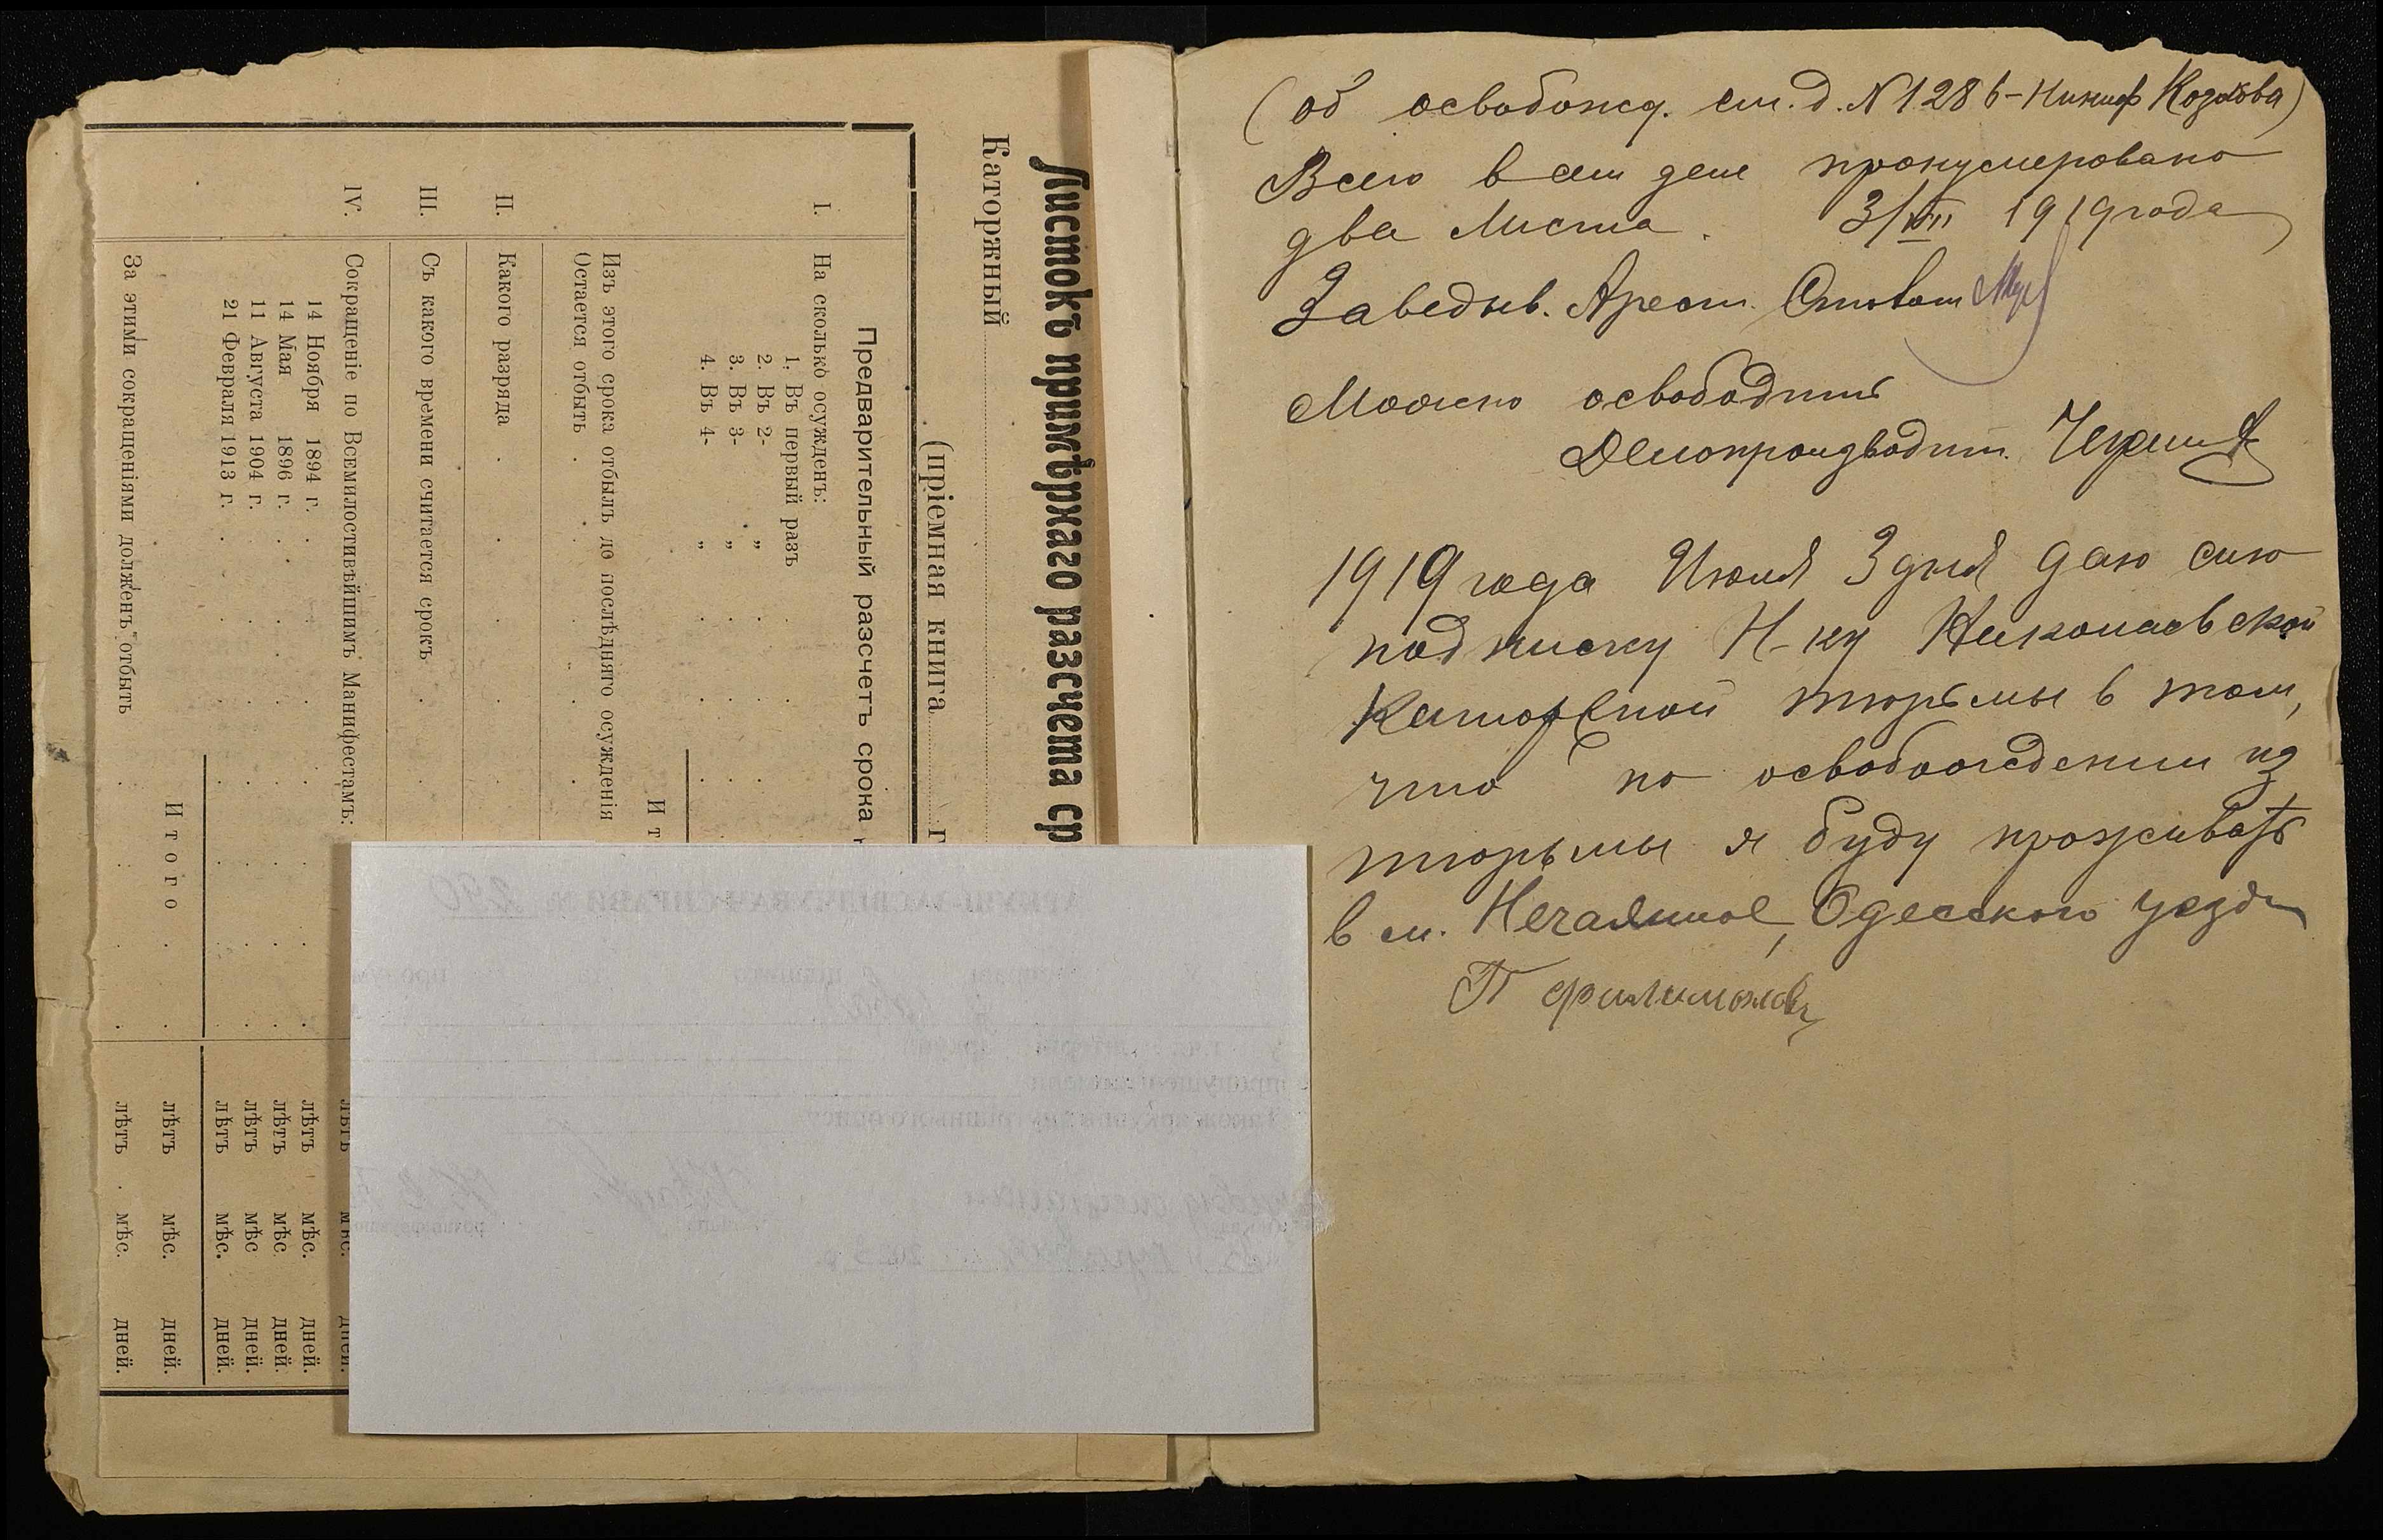 Листокъ примѣрнаго разсчета ср
Каторжный
(пріемная книга г
Предварительный разсчетъ срока
I. На сколько осужденъ:
1. Въ первый разъ
2. Въ 2- „
3. Въ 3- „
4. Въ 4- „
И т
Изъ этого срока отбылъ до послѣдняго осужденія
Остается отбыть
II. Какого разряда
III. Съ какого времени считается срокъ
IV. Сокращеніе по Всемилостивѣйшимъ Манифестамъ:
14 Ноября 1894 г. лѣтъ мѣс. дней.
14 Мая 1896 г. лѣтъ мѣс. дней.
11 Августа 1904 г. лѣтъ мѣс. дней.
21 Февраля 1913 г. лѣтъ мѣс. дней.
Итого лѣтъ мѣс. дней.
За этими сокращеніями долженъ отбыть лѣтъ мѣс. дней.
290
(об освобожд. см. д. N 1286 - Никиф Козлова)
Всего в сем деле пронумеровано
два листа. 3/VII 1919 года
Заведыв. Арест. Столом
Можно освободить
Делопроизводит.
1919 года Июля 3 дня даю сию
подписку Н-ку Николаевской
Каторжной тюрьмы в том,
что по освобождении из
тюрьмы я буду проживать
в м. Нечаянное, Одесского уезда
П Филимонов